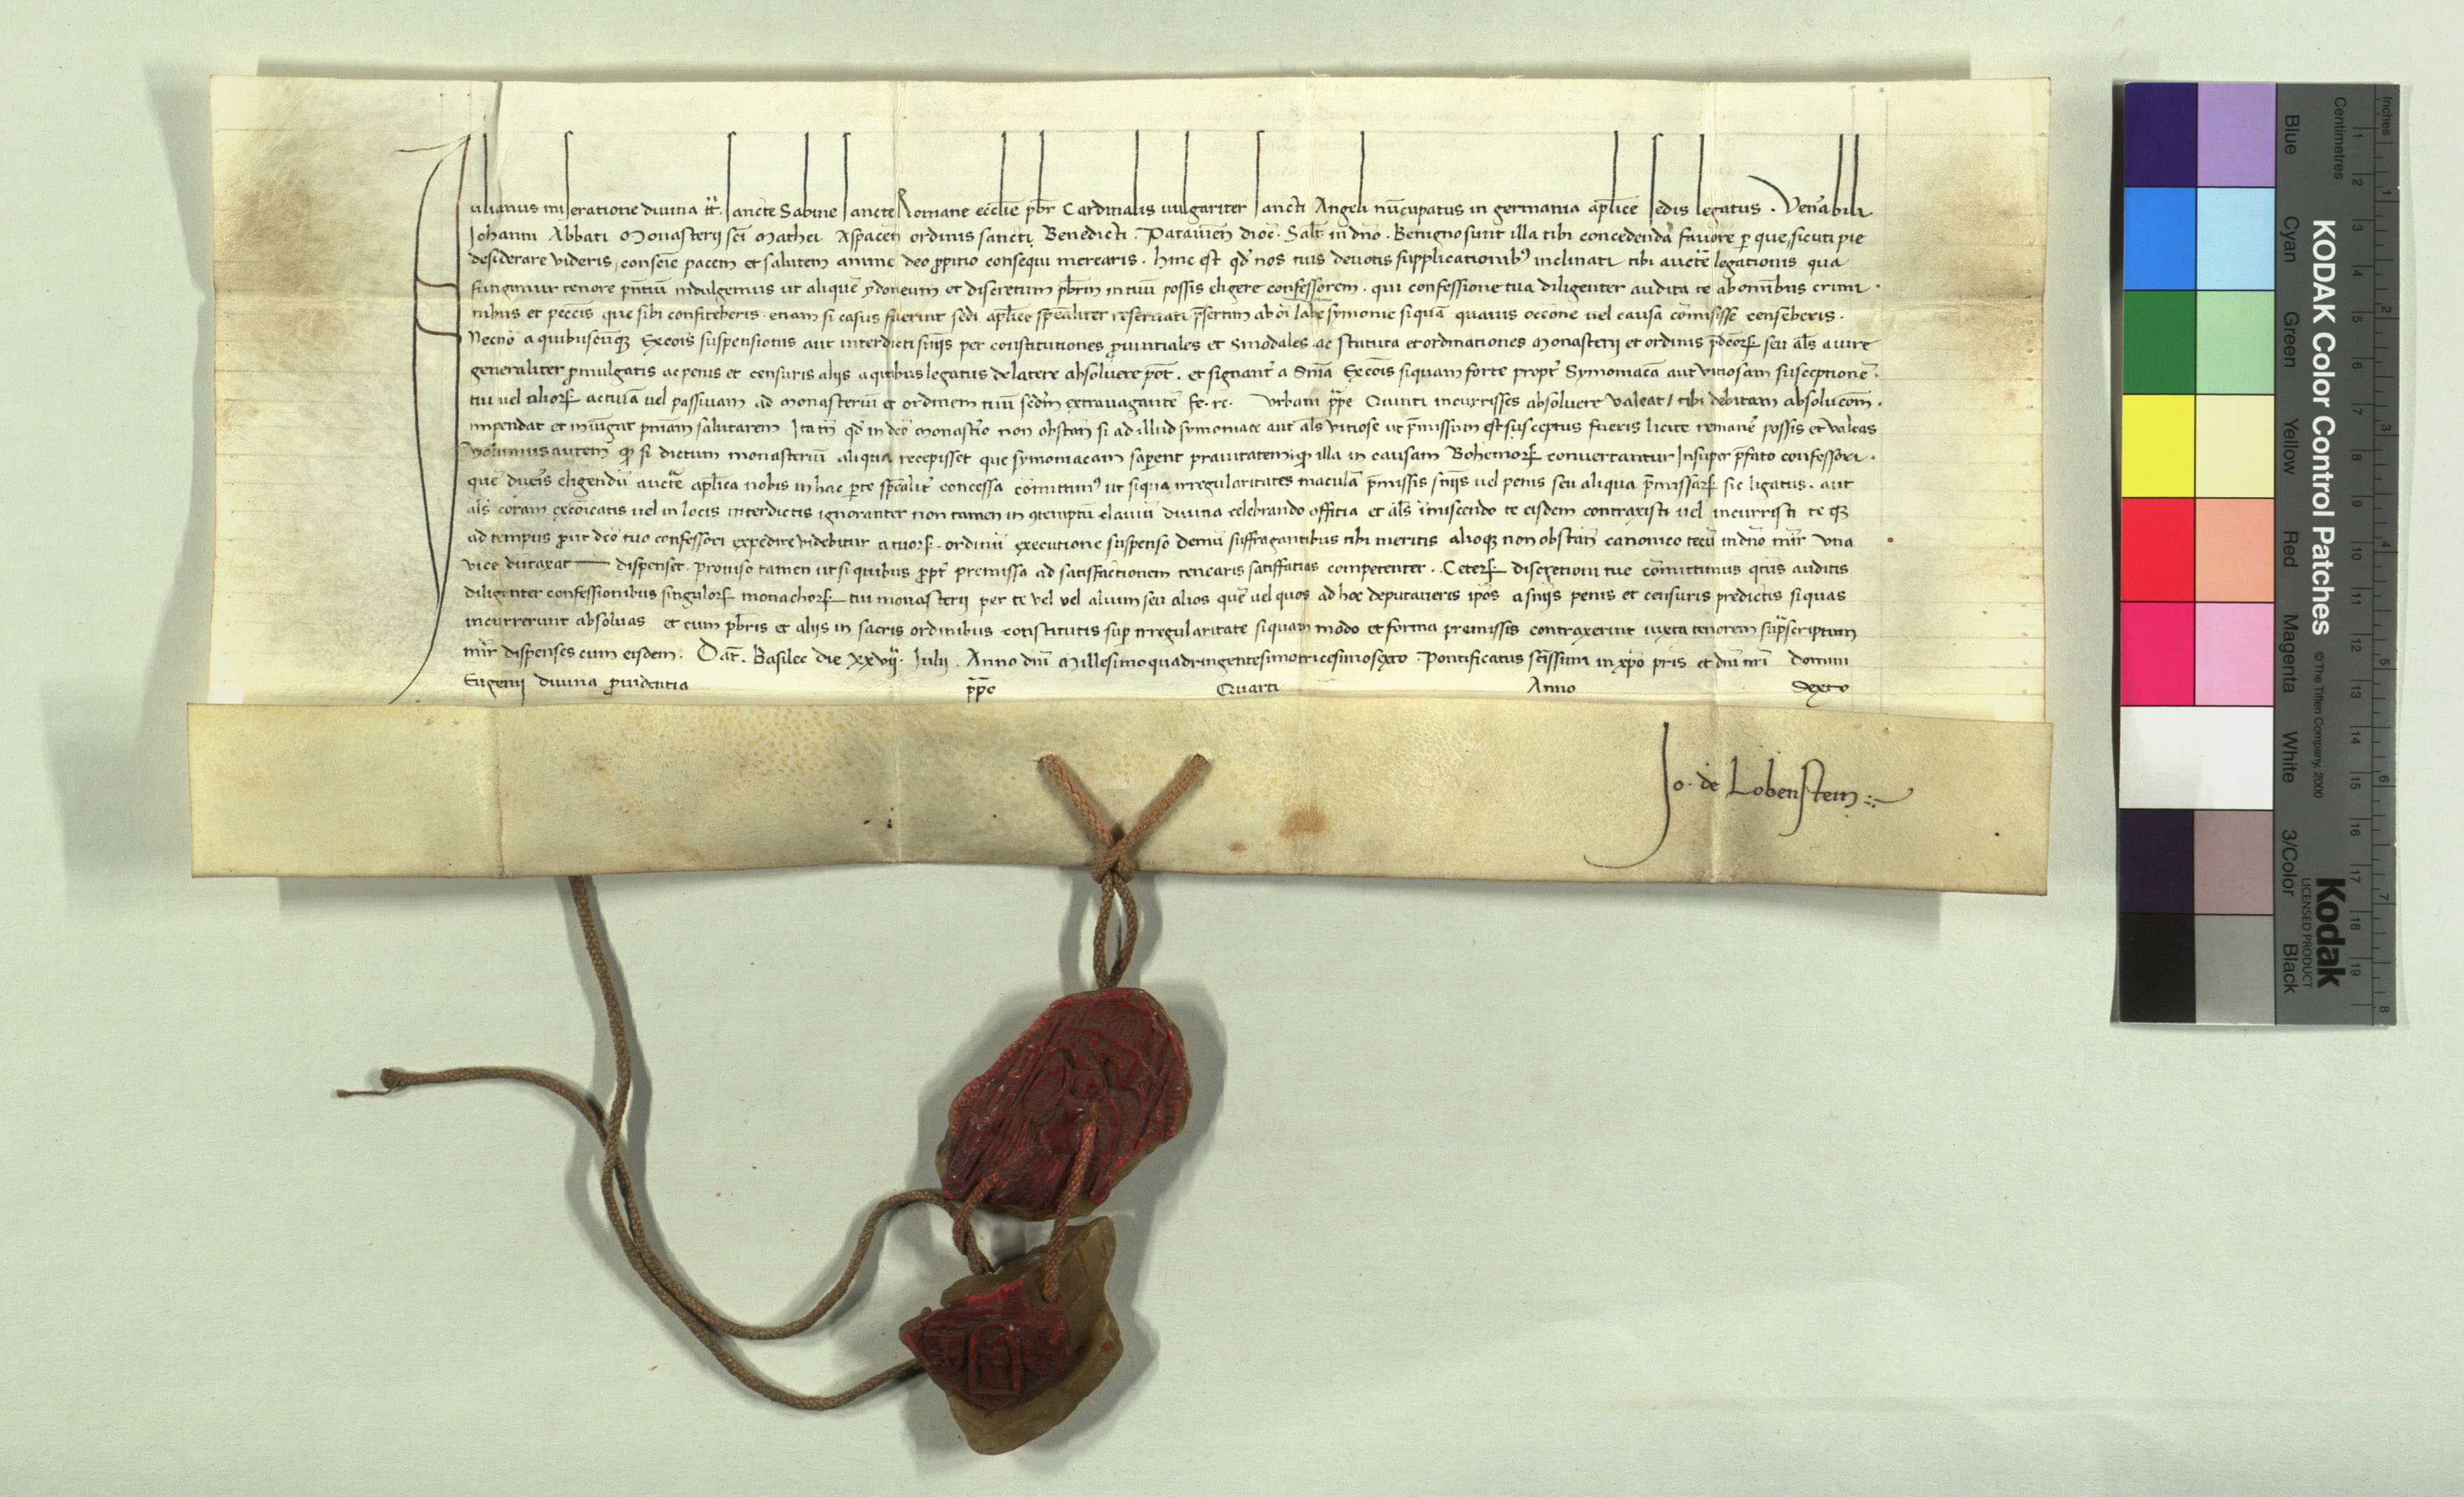 Iulianus miseratione divina tt̄. sancte Sabine sancte Romane ecclīe pb̄r Cardinalis vulgariter sancti Angeli nūcupatus in germania aplīce sedis legatus . Ven̄abili
Johanni Abbati Monasterij sc̄i Mathei Aspaceñ ordinis sancti Benedicti . Patavieñ dioc̄ . Sal̄t in dn̄o . Benigno sunt illa tibi concedenda favore per que, sicuti pie
desiderare videris, consc̄ie pacem et salutem anime deo p̱pitio consequi merearis . hinc est qd̄ nos tuis devotis supplicationib⁹ inclinati tibi aucte̅ legationis qua
fungimur tenore pn̄tiū indulgemus ut aliquē ydoneum et discretum pb̄rm in tuū possis eligere confessorem . qui confessione tua diligenter audita te ab omībus crimi .
nibus et pecc̄is que sibi confiteberis . etiam si casus fuerint sedi aplīce sp̄ealiter reservati p̄sertim ab oī labe symonie siquā quavis occ̄one vel causa cōmisisse censeberis .
Necnō a quibuscūqꝫ Excōis suspensionis aut interdicti sn̄ijs per constitutiones p̱vintiales et Sinodales ac statuta et ordinationes Monasterij et ordinis p̄dcōꝝ seu al̄s a iure
generaliter p̱mulgatis ac penis et censuris alijs a quibus legatus de latere absolvere pōt . et signanť a Sn̄ia Excōis siquam forte propť Symoniacā aut vitiosam susceptionē .
tui vel alioꝝ activā vel passivam ad monasteriū et ordinem tuū secdm̄ extravagantē fe . re . Urbani pp̄e Quinti incurrisses absolvere valeat / tibi debitam absolucōm .
impendat et iniūgat pn̄iam salutarem . Ita tn̄ qd̄ in dcō monastr̄io non obstan̄ si ad illud symoniace aut al̄s vitiose ut p̄missum est susceptus fueris licite remanē possis et valeas
Volumus autem qͥ si dictum monasteriū aliqua recepisset que symoniacam saperent pravitatem, qͥ illa in causam Bohemoꝝ convertantur Insuper p̄fato confessori .
quē duxīs eligendū aucte̅ aplīca nobis in hac pt̄e sp̄ealiť concessa cōmittim⁹ ut siqua irregularitatis maculā p̄missis sn̄ijs vel penis seu aliqua p̄missaꝝ sic ligatus . aut
al̄s coram excōicatis vel in locis interdictis ignoranter non tamen in ꝯtemptū claviū divina celebrando offitia et al̄s īmiscendo te eisdem contraxisti vel incurristi te qꝫ
ad tempus prout dcō tuo confessori expedire videbitur a tuoꝝ ordinū executione suspenso demū suffragantibus tibi meritis alioqꝫ non obstan̄ canonico tecū in dn̄o mīr una
vice dūtaxat — dispenset . proviso tamen ut si quibus p̱pť premissa ad satisfactionem tenearis satisfatias competenter . Ceteꝝ discretioni tue cōmittimus q̄tus auditis
diligenter confessionibus singuloꝝ monachoꝝ tui monasterij per te vel vel alium seu alios quē vel quos ad hoc deputaveris ipōs a sn̄ijs penis et censuris predictis siquas
incurrerunt absolvas et cum pb̄ris et alijs in sacris ordinibus constitutis sup irregularitate siquam modo et forma premissis contraxerint iuxta tenorem sup̄scriptum
mīr dispenses cum eisdem . Dat̄ . Basilee die xxvij . Iulij . Anno dn̄i Millesimoquadringentesimotricesimosexto . Pontificatus sc̄issimi in xpō pr̄is et dn̄i nr̄i domini
Eugenij divina p̱videntia pp̄e Quarti Anno Sexto
Jo . de Lobenstein
KODAK Color Control Patches © The Tiffen Company, 2000
Kodak
LICENSED PRODUCT
Blue Cyan Green Yellow Red Magenta White 3/Color Black
Inches 1 2 3 4 5 6 7 8
Centimetres 1 2 3 4 5 6 7 8 9 10 11 12 13 14 15 16 17 18 19